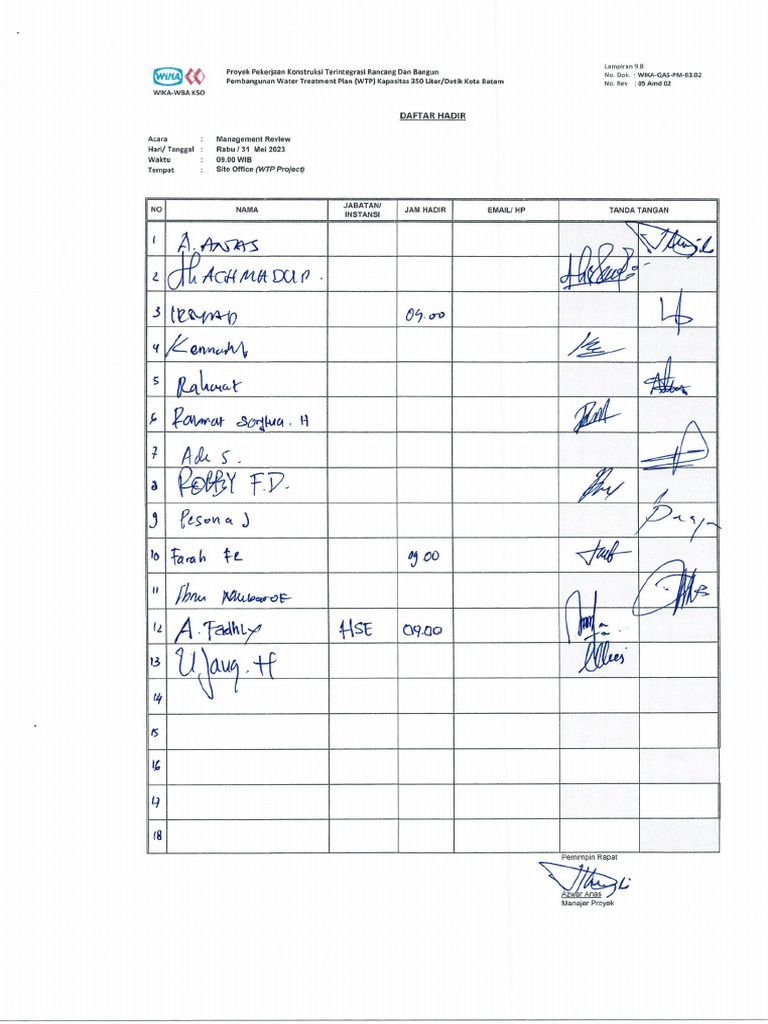 WIKA
WIKA-WBA KSO
Proyek Pekerjaan Konstruksi Terintegrasi Rancang Dan Bangun
Pembangunan Water Treatment Plan (WTP) Kapasitas 350 Liter/Detik Kota Batam
Lampiran 9.8
No. Dok. : WIKA-QAS-PM-03.02
No. Rev : 05 Amd 02
DAFTAR HADIR
Acara : Management Review
Hari/ Tanggal : Rabu / 31 Mei 2023
Waktu : 09.00 WIB
Tempat : Site Office (WTP Project)
NO NAMA JABATAN/ INSTANSI JAM HADIR EMAIL/ HP TANDA TANGAN
1 A. ANAS
2 ACHMAD
3 09.00
4
5 Rahmat
6 Rahmat H
7 Ade S.
8 ROBBY F.D.
9 Pesona J
10 Farah Fe 09.00
11 Ibnu
12 A. Fadhly HSE 09.00
13 Ujang. H
14
15
16
17
18
Pemimpin Rapat
Azwar Anas
Manajer Proyek